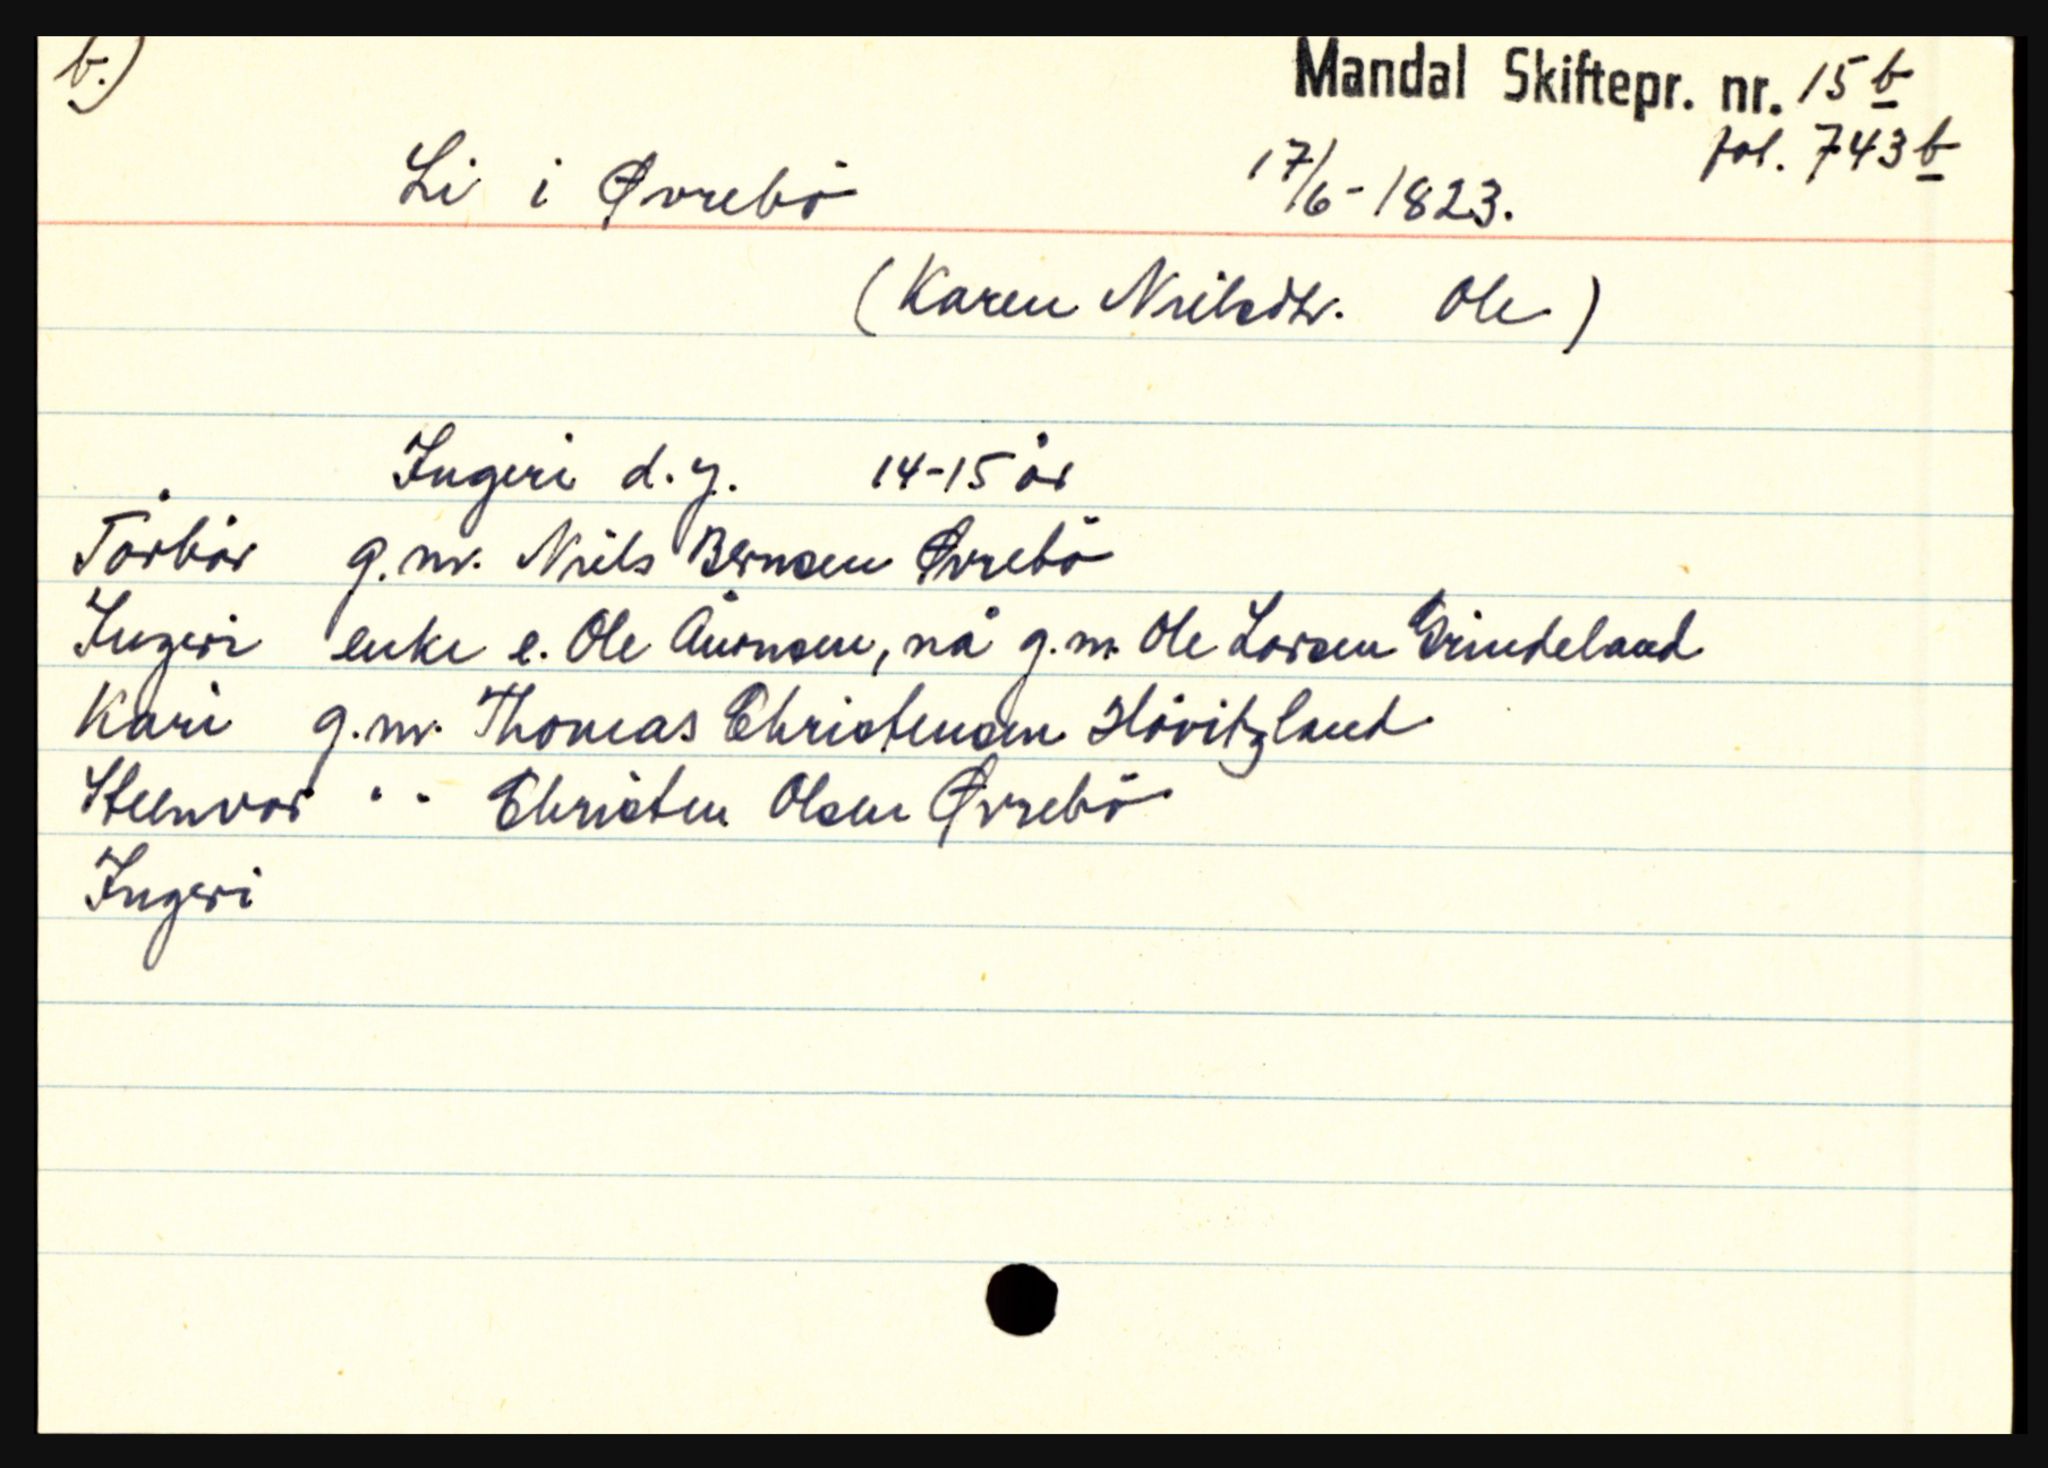 b.)
Mandal Skiftepr. nr. 15 b
fol. 743 b
Li i Øvrebö 17/6-1823.
(Karen Nielsdtr. Ole)
Ingeri d.y. 14-15 år
Torbor g.m. Niels Bernsen Øvrebö
Ingeri enke e. Ole Ånonsen, nå g.m. Ole Larsen Grindeland
Kari g.m. Thomas Christensen Hövitzland
Steenvor " Christen Olsen Øvrebö
Ingeri